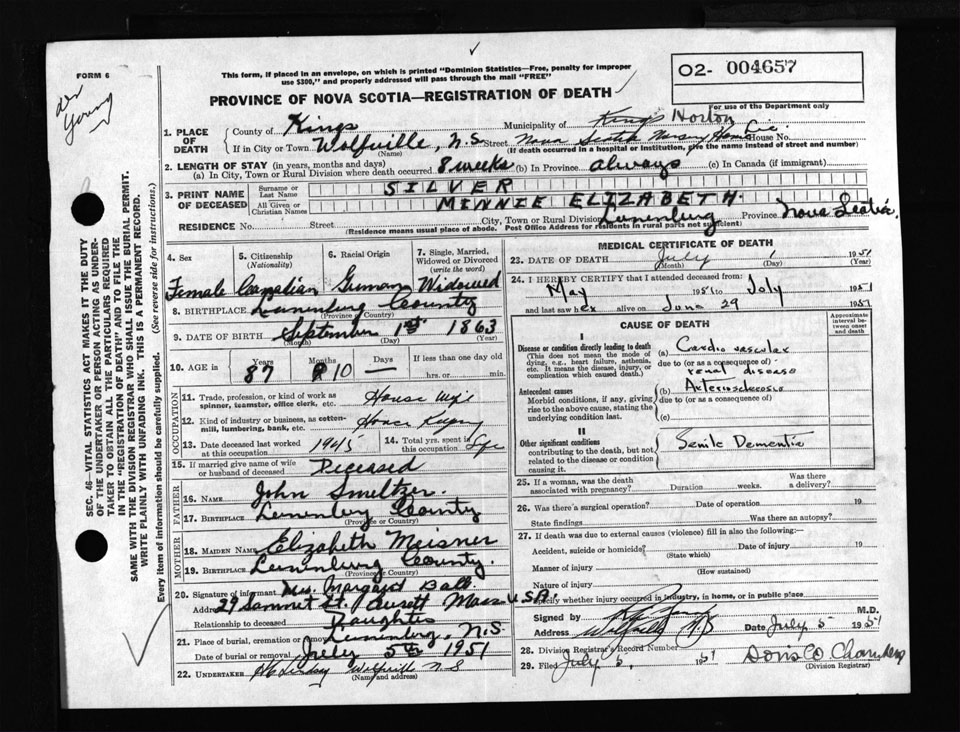 FORM 6
This form, if placed in an envelope, on which is printed "Dominion Statistics—Free, penalty for improper
use $300," and properly addressed will pass through the mail "FREE"
O2- 004657
PROVINCE OF NOVA SCOTIA—REGISTRATION OF DEATH
For use of the Department only
Young
1. PLACE OF DEATH
County of Kings Municipality of Kings Horton
If in City or Town Wolfville, N.S Street Nursing Home House No.
(Name) (If death occurred in a hospital or Institution, give the name instead of street and number)
2. LENGTH OF STAY (in years, months and days)
(a) In City, Town or Rural Division where death occurred 8 weeks (b) In Province always (c) In Canada (if immigrant)
3. PRINT NAME OF DECEASED
Surname or Last Name SILVER
All Given or Christian Names MINNIE ELIZABETH.
RESIDENCE No. Street City, Town or Rural Division Lunenburg Province Nova Scotia
(Residence means usual place of abode. Post Office Address for residents in rural parts not sufficient)
4. Sex Female
5. Citizenship (Nationality) Canadian
6. Racial Origin German
7. Single, Married, Widowed or Divorced (write the word) Widowed
8. BIRTHPLACE Lunenburg County
(Province or Country)
9. DATE OF BIRTH September 1st 1863
(Month) (Day)
10. AGE in Years 87 Months 10 Days — If less than one day old
hrs. or min.
OCCUPATION
11. Trade, profession, or kind of work as spinner, teamster, office clerk, etc. House Wife
12. Kind of industry or business, as cotton-mill, lumbering, bank, etc. House Keeping
13. Date deceased last worked at this occupation 1945
14. Total yrs. spent in this occupation
15. If married give name of wife or husband of deceased Deceased
FATHER
16. NAME John Smeltzer.
17. BIRTHPLACE Lunenburg County
(Province or Country)
MOTHER
18. MAIDEN NAME Elizabeth Meisner
19. BIRTHPLACE Lunenburg County.
(Province or Country)
20. Signature of informant Mrs. Margaret Ball.
Address 29 St. Mass U.S.A.
Relationship to deceased Daughter
21. Place of burial, cremation or removal Lunenburg, N.S
Date of burial or removal July 5th 1951
22. UNDERTAKER Lindsay Wolfville N S
(Name and address)
MEDICAL CERTIFICATE OF DEATH
23. DATE OF DEATH July 1 1951
(Month) (Day) (Year)
24. I HEREBY CERTIFY that I attended deceased from:
May 1951 to July 1951
and last saw her alive on June 29 1951
CAUSE OF DEATH
Approximate interval between onset and death
I
Disease or condition directly leading to death
(This does not mean the mode of dying, e.g., heart failure, asthenia, etc. It means the disease, injury, or complication which caused death.)
(a) Cardio vascular
due to (or as consequence of)
renal disease
Antecedent causes
Morbid conditions, if any, giving rise to the above cause, stating the underlying condition last.
(b) Arteriosclerosis
due to (or as consequence of)
(c)
II
Other significant conditions
contributing to the death, but not related to the disease or condition causing it.
Senile Dementia
25. If a woman, was the death associated with pregnancy? Duration weeks. Was there a delivery?
26. Was there a surgical operation? Date of operation 19
State findings Was there an autopsy?
27. If death was due to external causes (violence) fill in also the following:
Accident, suicide or homicide? Date of injury 19
(State which)
Manner of injury
(How sustained)
Nature of injury
Specify whether injury occurred in industry, in home, or in public place
Signed by M.D.
Address Wolfville N S Date July 5 1951
28. Division Registrar's Record Number
29. Filed July 5, 1951 Doris
(Division Registrar)
SEC. 46—VITAL STATISTICS ACT MAKES IT THE DUTY
OF THE UNDERTAKER OR PERSON ACTING AS UNDERTAKER TO OBTAIN ALL THE PARTICULARS REQUIRED
IN THE "REGISTRATION OF DEATH" AND TO FILE THE
SAME WITH THE DIVISION REGISTRAR WHO SHALL ISSUE THE BURIAL PERMIT.
WRITE PLAINLY WITH UNFADING INK. THIS IS A PERMANENT RECORD.
Every item of information should be carefully supplied. (See reverse side for instructions.)